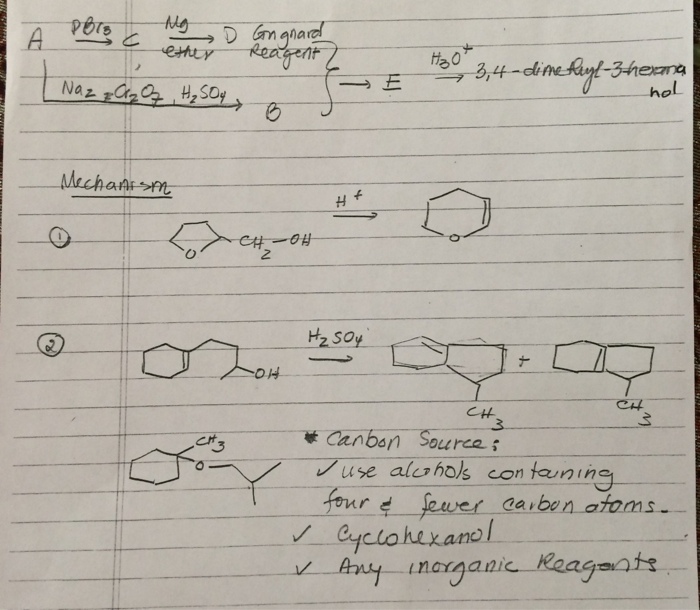 A PBr3 → C Mg → ether D Grignard Reagent
→ E H3O+ → 3,4-dimethyl-3-hexanol
Na2=Cr2O7, H2SO4 → B
Mechanism
① O CH2-OH H+ → O
② OH H2SO4 → CH3 + CH3
CH3 O
* Carbon Source:
✓ use alcohols containing
four & fewer carbon atoms.
✓ Cyclohexanol
✓ Any inorganic Reagents